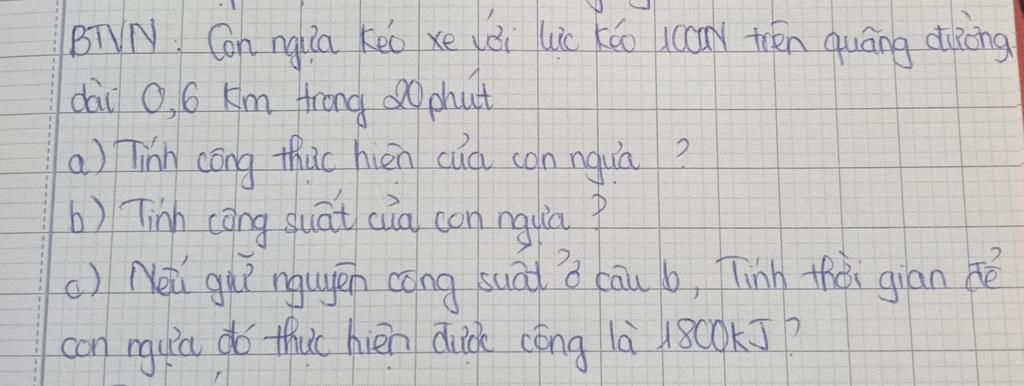 BTVN: Con ngựa kéo xe với lực kéo 1000N trên quãng đường
dài 0,6 Km trong 20 phút
a) Tính công thực hiện của con ngựa ?
b) Tính công suất của con ngựa ?
c) Nếu giữ nguyên công suất ở câu b, Tính thời gian để
con ngựa đó thực hiện được công là 1800kJ ?